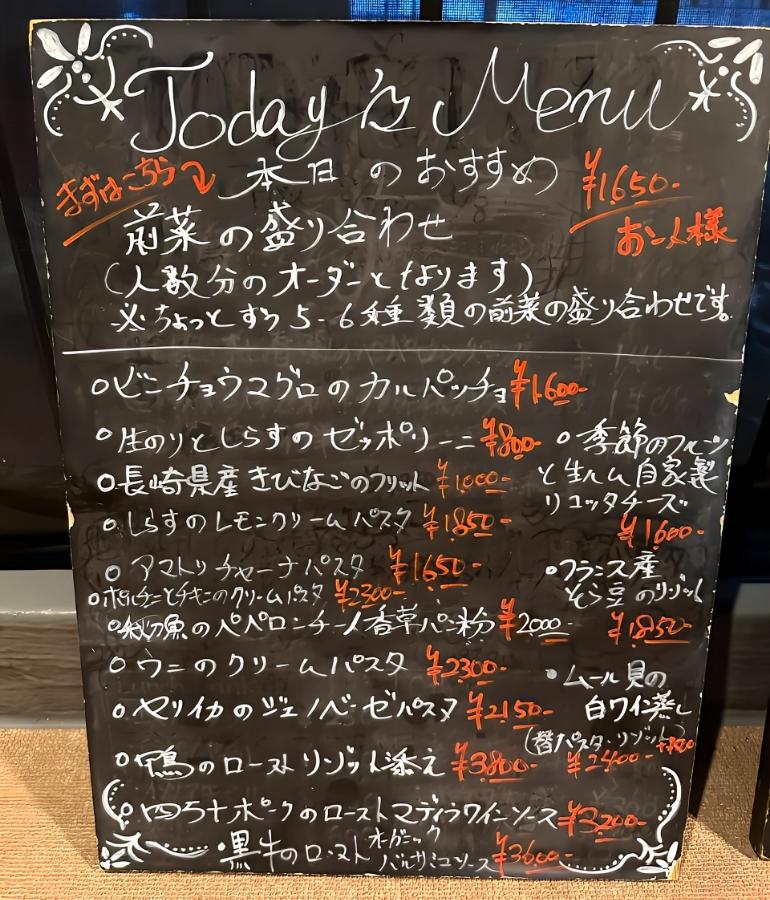 Today's Menu
まずはこちら 本日のおすすめ ¥1,650-
前菜の盛り合わせ お一人様
(人数分のオーダーとなります)
※ちょっとずつ5-6種類の前菜の盛り合わせです。
○ビンチョウマグロのカルパッチョ ¥1,600-
○生のりとしらすのゼッポリーニ ¥800-
○長崎県産きびなごのフリット ¥1,000-
○しらすのレモンクリームパスタ ¥1850-
○アマトリチャーナパスタ ¥1,650-
○ポルチーニとチキンのクリームパスタ ¥2300-
○秋刀魚のペペロンチーノ香草パン粉 ¥2000-
○ウニのクリームパスタ ¥2300-
○ヤリイカのジェノベーゼパスタ ¥2150-
○鴨のローストリゾット添え ¥3,800-
○四万十ポークのローストマディラワインソース ¥3,200-
・黒牛のロースト オーガニック
バルサミコソース ¥3600-
○季節のフルーツ
と生ハム自家製
リコッタチーズ
¥1600-
・フランス産
そら豆のリゾット
¥1,850-
・ムール貝の
白ワイン蒸し
(替パスタ・リゾット)
¥2400-